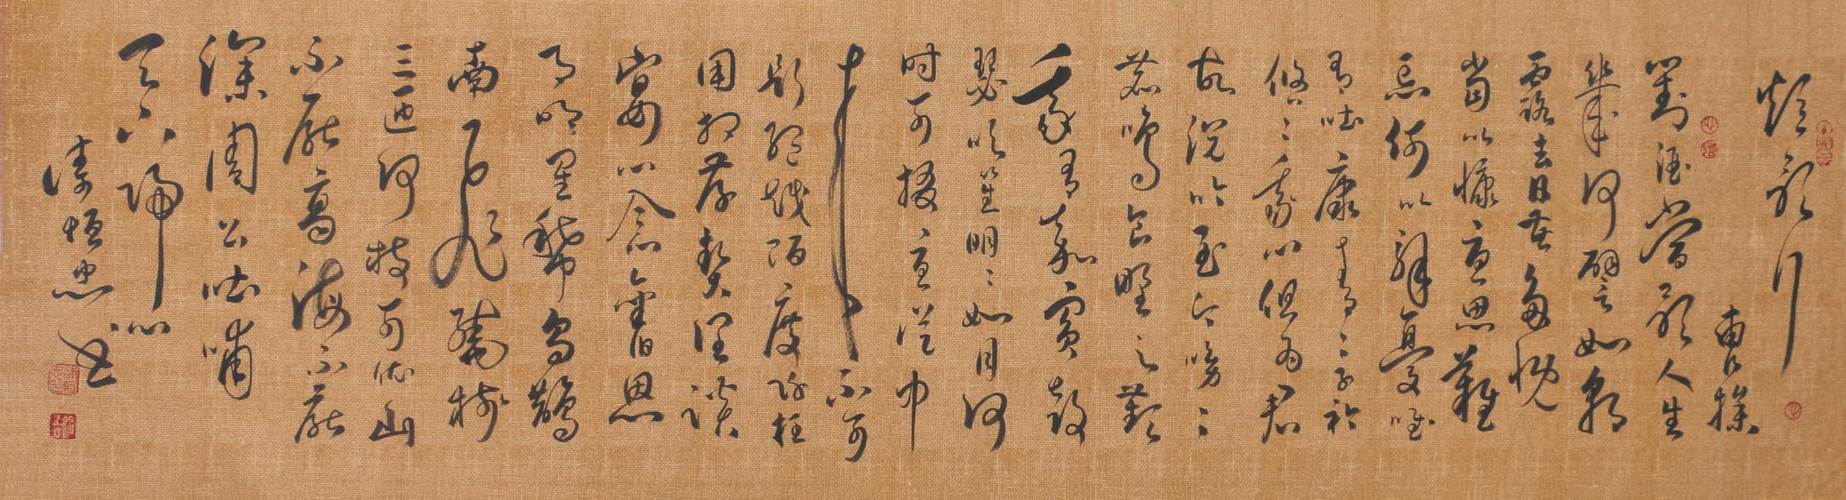 短歌行
曹操
對酒當歌人生
幾何譬如朝
露去日苦多慨
當以慷憂思難
忘何以解憂唯
有杜康青青子衿
悠悠我心但為君
故沉吟至今呦呦
鹿鳴食野之
我有嘉賓鼓
瑟吹笙明明如月何
时可掇憂從中
來不可
斷絕越陌度阡枉
用相存契闊談
宴心念舊恩
月明星稀烏鵲
南飛繞樹
三匝何枝可依山
不厭高海不厭
深周公吐哺
天下歸心
书